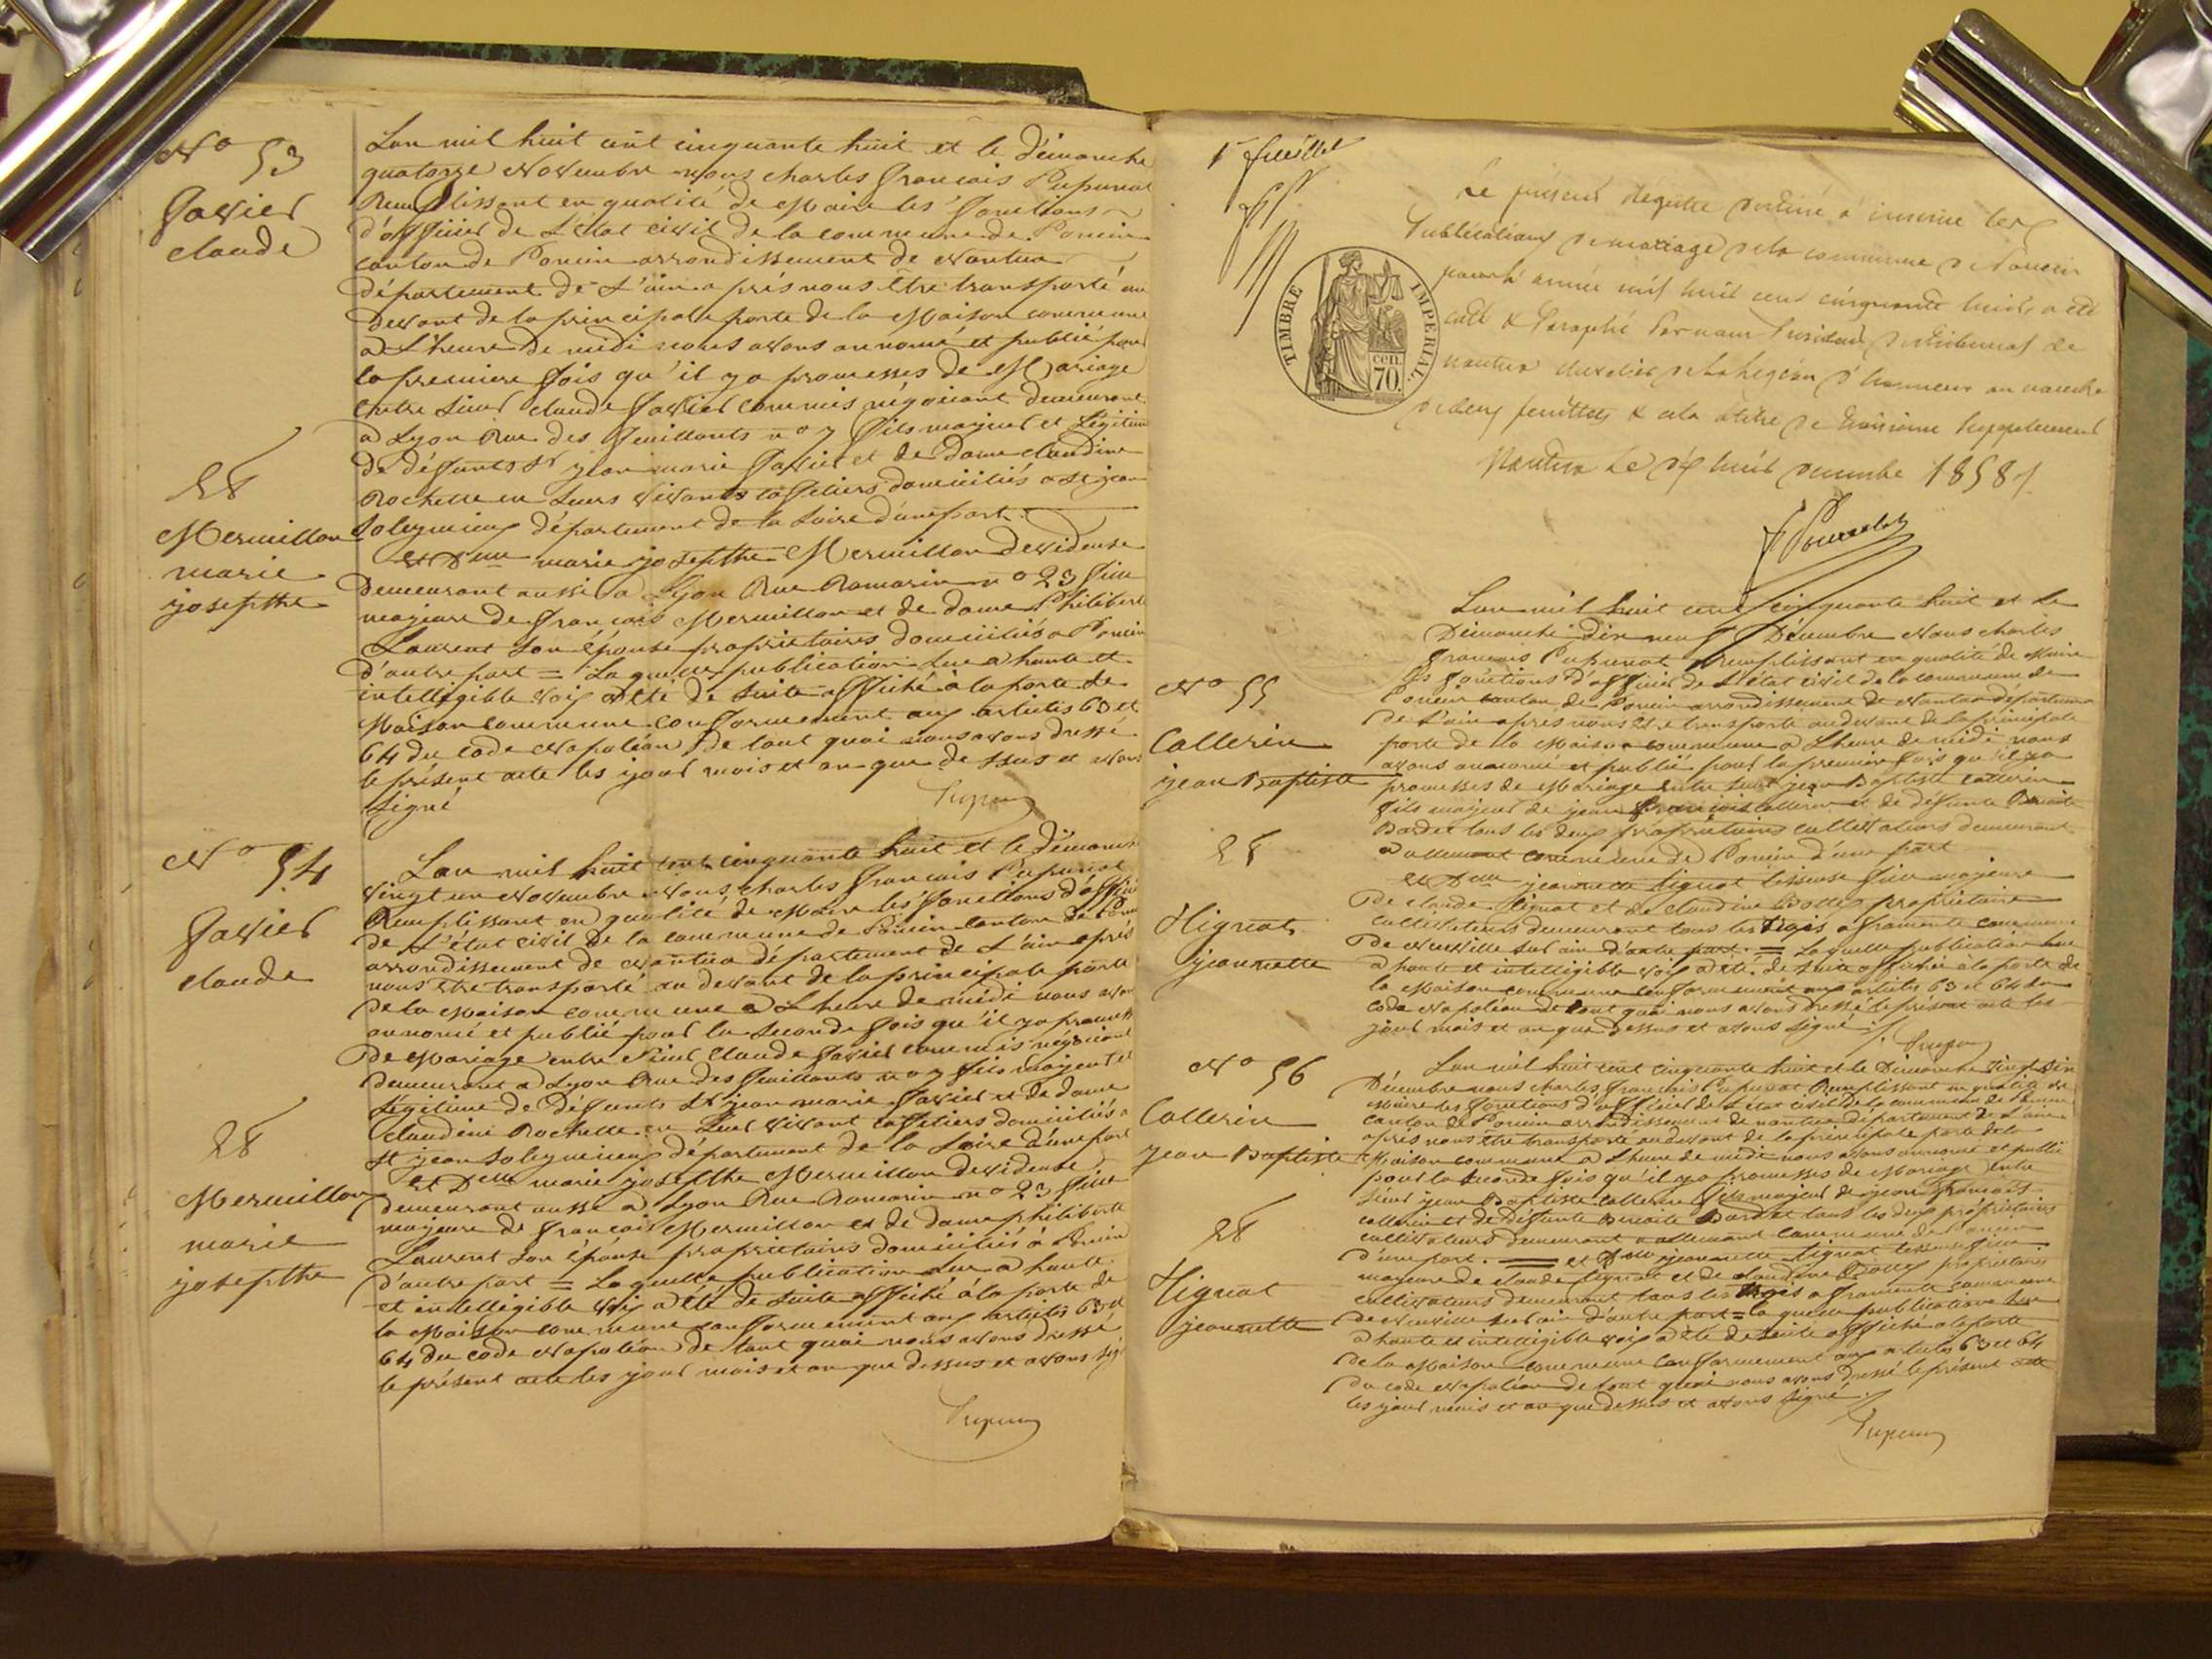 No 53
Favier
claude
Lan mil huit cent cinquante huit et le dimanche
quatorze Novembre nous charles francois Pupunat
Remplissant en qualité de Maire les fonctions
d'officier de L'état civil de la commune de Poncin
canton de Poncin arrondissement de Nantua
département de L'ain après nous être transporté au
devant de la principale porte de la Maison commune
a L'heure de midi nous avons annoncé et publié pour
la premiere fois qu'il y a promesses de Mariage
entre sieur claude favier commis négociant demeurant
a Lyon Rue des feuillants no 7 fils majeur et Légitime
de défunts St jean marie favier et de dame claudine
Rochette en Leurs vivants cafetiers domiciliés a St jean
Soleymieux département de la Loire d'une part.
28
Mermillon
marie
josephte
et Delle marie josephte Mermillon devideuse
demeurant aussi a Lyon Rue Romarin no 23 fille
majeure de francois Mermillon et de dame Philiberte
Laurent son épouse propriétaires domiciliés a Poncin
d'autre part = Laquelle publication lue a haute et
intelligible voix a été de suite affiché à la porte de
Maison commune conformement aux articles 63 et
64 du code Napoléon de tout quoi nous avons dressé
le présent acte les jour mois et an que de ssus et avons
signé
No 54
Favier
claude
Lan mil huit cent cinquante huit et le dimanche
vingt un Novembre Nous charles francois Pupunat
Remplissant en qualité de Maire les fonctions d'officier
de L'état civil de la commune de Poncin canton de Poncin
arrondissement de Nantua département de L'ain après
nous être transporté au devant de la principale porte
de la Maison commune a L'heure de midi nous avons
annoncé et publié pour la seconde fois qu'il y a promesses
de Mariage entre sieur claude favier commis négociant
demeurant a Lyon Rue des feuillants no 7 fils majeur et
Légitime de défunts St jean marie favier et de dame
claudine Rochette en Leur vivant cafetiers domiciliés a
St jean Soleymieux département de la Loire d'une part
28
Mermillon
marie
josephte
et Delle marie josephte Mermillon devideuse
demeurant aussi a Lyon Rue Romarin no 23 fille
majeure de francois Mermillon et de dame philiberte
Laurent son épouse propriétaires domiciliés à Poncin
d'autre part = Laquelle publication lue a haute
et intelligible voix a été de suite affiché à la porte de
la Maison commune conformement aux articles 63 et
64 du code Napoléon de tout quoi nous avons dressé
le présent acte les jour mois et an que dessus et avons sig
1r feuillet
TIMBRE IMPÉRIAL.
70 cen.
Le présent Registre destiné à inscrire les
Publications de mariage de la commune de Poncin
pour l'année mil huit cent cinquante huit, a été
coté & Paraphé Par nous Président du tribunal de
nantua chevalier de la Légion d'honneur au nombre
de deux feuillets & cela à titre de troisième supplément
Nantua Le dix huit décembre 1858
Lan mil huit cent cinquante huit et le
Dimanche dix neuf Décembre Nous charles
francois Pupunat remplissant en qualité de Maire
les fonctions d'officier de L'état civil de la commune de
Poncin canton de Poncin arrondissement de Nantua département
de L'ain après nous être transporté au devant de la principale
No 55
Collerin
jean Baptiste
porte de la Maison commune a L'heure de midi nous
avons annoncé et publié pour la premiere fois qu'il y a
promesses de Mariage entre sieur jean Baptiste collerin
fils majeur de jean francois collerin et de défunte Benoite
Bardet tous les deux propriétaires cultivateurs demeurant
a allement commune de Poncin d'une part
28
Tignat
jeannette
et Delle jeannette tignat tisseuse fille majeure
de claude tignat et de claudine propriétaires
cultivateurs demeurant tous les trois a fromente commune
de Neuville sur ain d'autre part = Laquelle publication lue
a haute et intelligible voix a été de suite affichée à la porte de
la Maison commune conformement aux articles 63 et 64 du
code Napoléon de tout quoi nous avons dressé le présent acte les
jour mois et an que dessus et avons signé
No 56
Collerin
jean Baptiste
Lan mil huit cent cinquante huit et le Dimanche vingt six
Décembre nous charles francois Pupunat Remplissant en qualité de
Maire les fonctions d'officier de L'état civil de la commune de Poncin
canton de Poncin arrondissement de nantua département de L'ain
après nous être transporté au devant de la principale porte de la
Maison commune a L'heure de midi nous avons annoncé et publié
pour la seconde fois qu'il y a promesses de Mariage entre
sieur jean Baptiste collerin fils majeur de jean francois
collerin et de défunte Benoite Bardet tous les deux propriétaires
cultivateurs demeurant a allement commune de Poncin
28
Tignat
jeannette
d'une part. = et Delle jeannette tignat tisseuse fille
majeure de claude tignat et de claudine propriétaires
cultivateurs demeurant tous les trois a fromente commune
de Neuville sur ain d'autre part = laquelle publication lue
a haute et intelligible voix a été de suite affiché a la porte
de la Maison commune conformement aux articles 63 et 64
du code Napoléon de tout quoi nous avons dressé le présent acte
les jour mois et an que dessus et avons signé